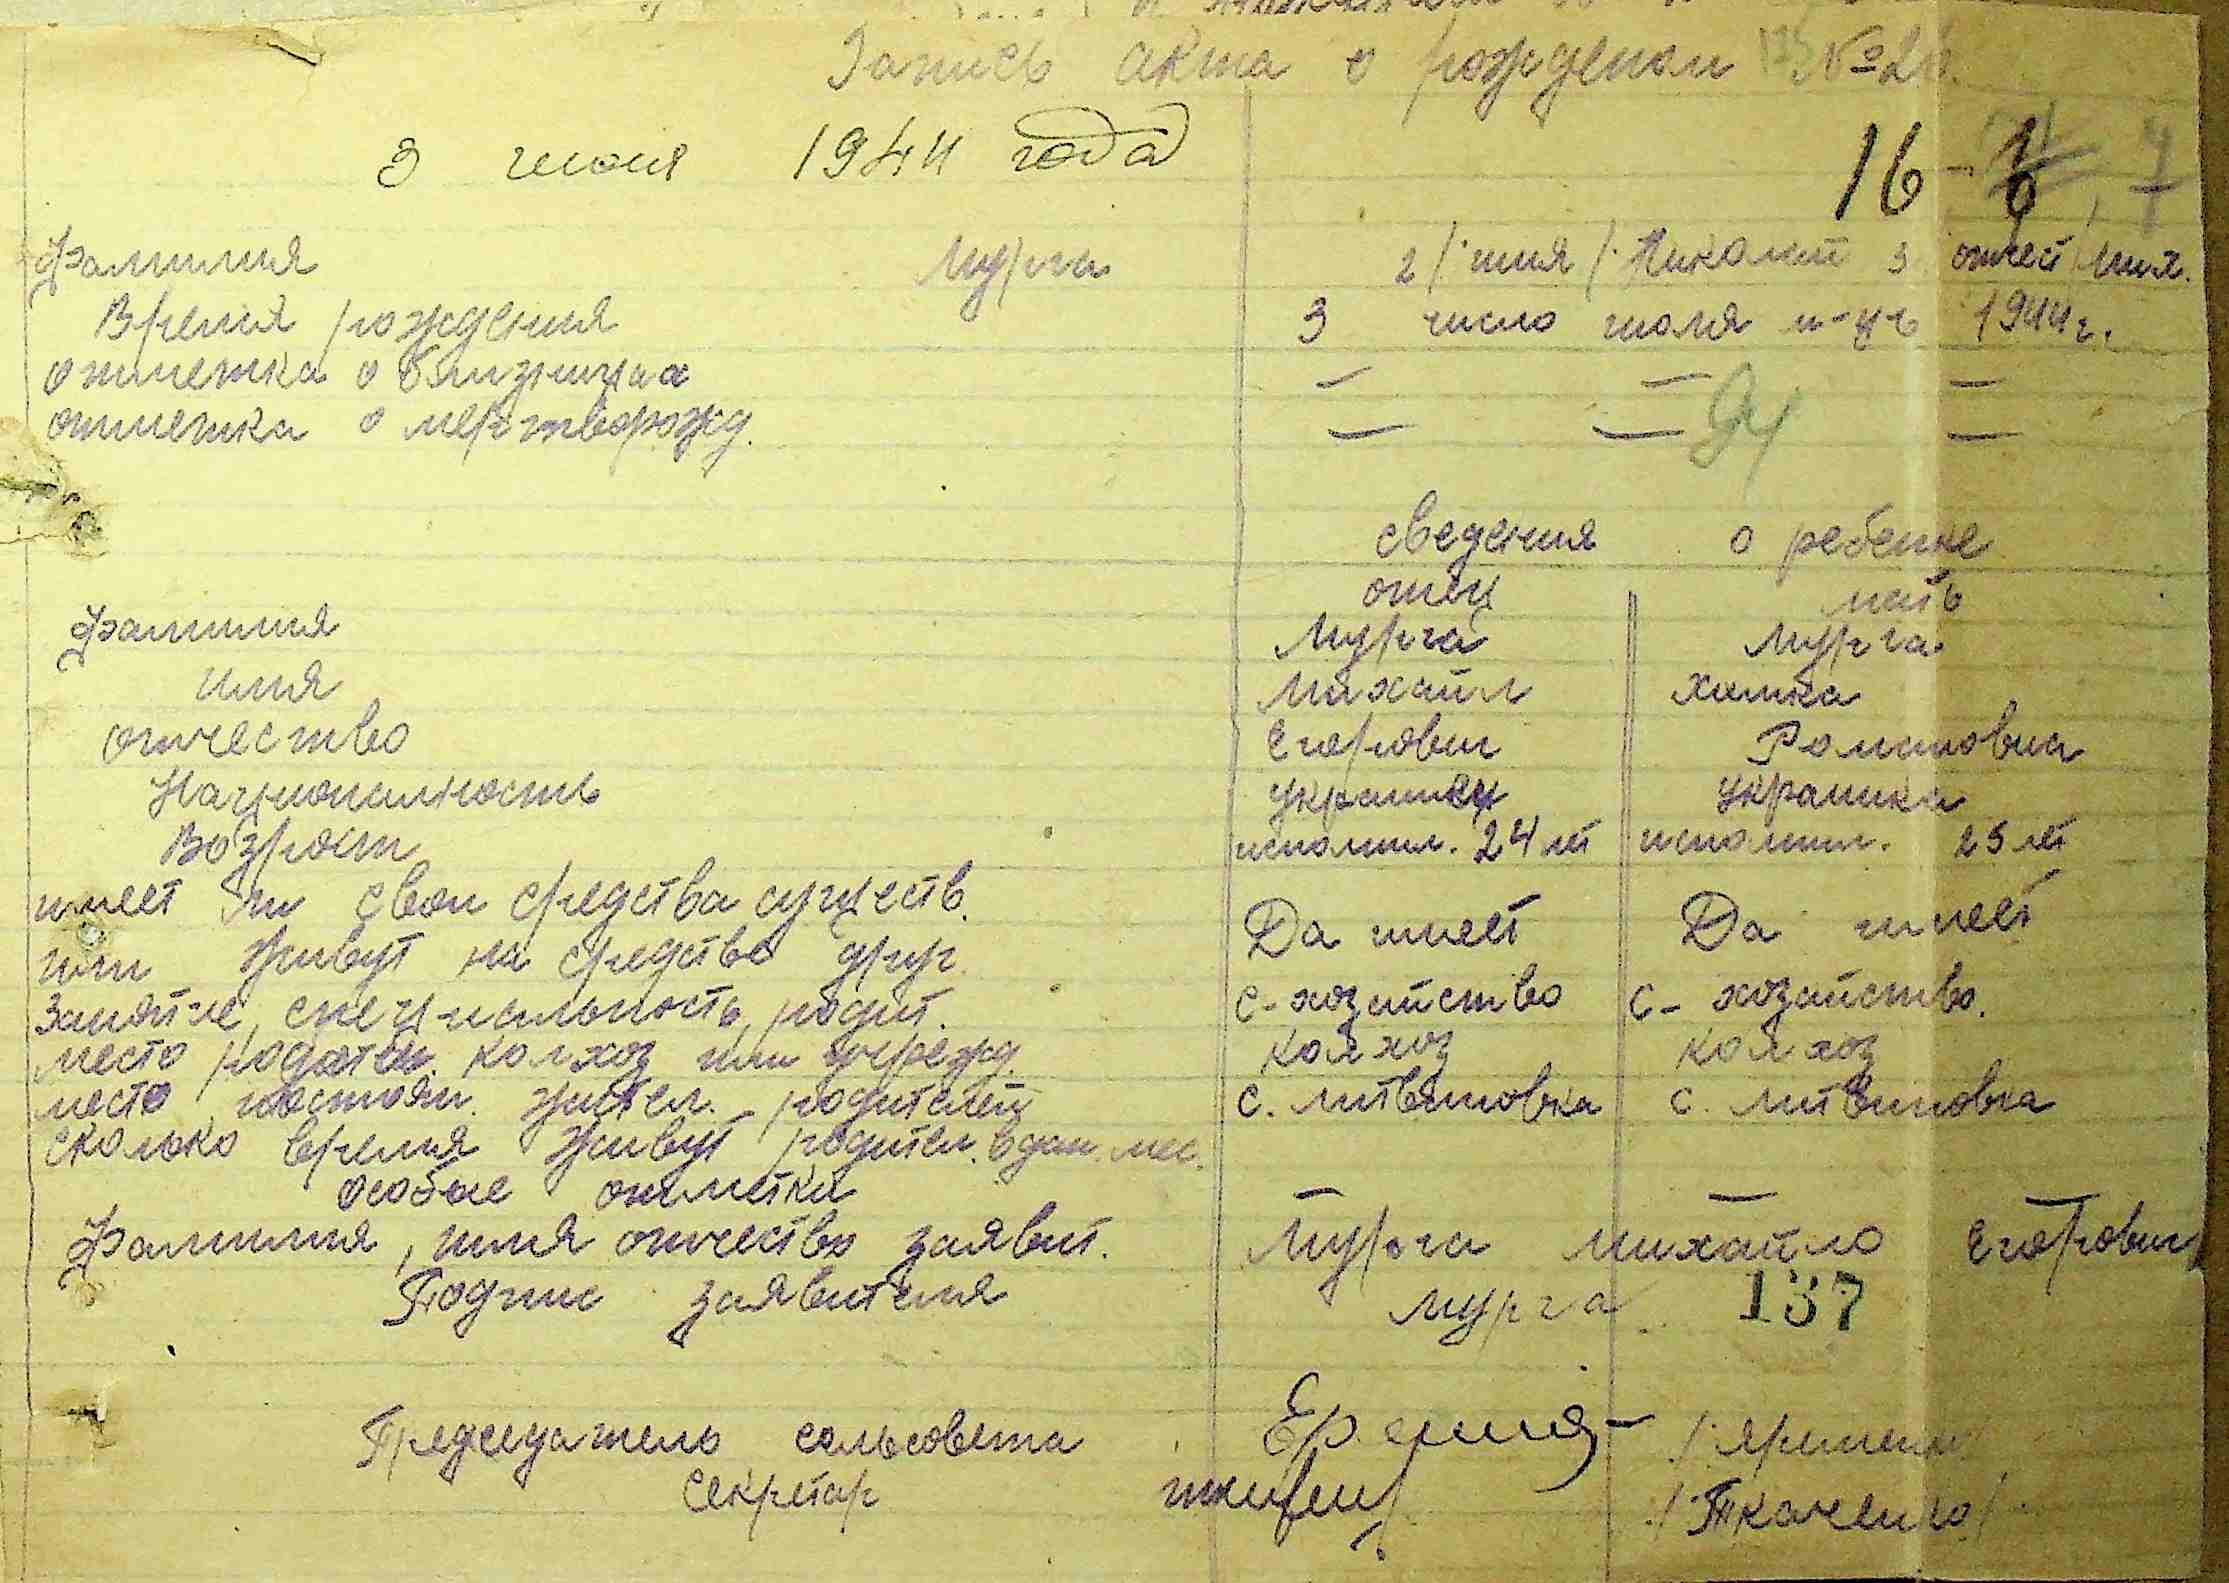 Запись акта о рождении №2
3 июля 1944 года
16
Фамилия Мурга 2/ имя / Николай 3 отчей имя.
Время рождения 3 число июля м-ца 1944 г.
отметка о близнецах — — —
отметка о мертворожд. — — —
94
сведения о ребенке
отец мать
Фамилия Мурга Мурга
имя Михаил Химка
отчество Егорович Романовна
Национальность украинец украинка
Возраст исполнил. 24 лет исполнил. 25 лет
имеет ли свои средства существ. Да имеет Да имеет
или живут на средства друг.
Занят-ие, специальность, родит. с-хозяйство с-хозайство.
место работы. колхоз или учрежд. колхоз колхоз
место постоян. жител. родителей с. Литвиновка с. Литвиновка
сколько время живут родител. в дан. мес.
особые отметки — —
Фамилия, имя отчество заявит. Мурга Михайло Егорович
Подпис заявителя Мурга 137
Председатель сельсовета /Яременко
Секретар /Ткаченко/